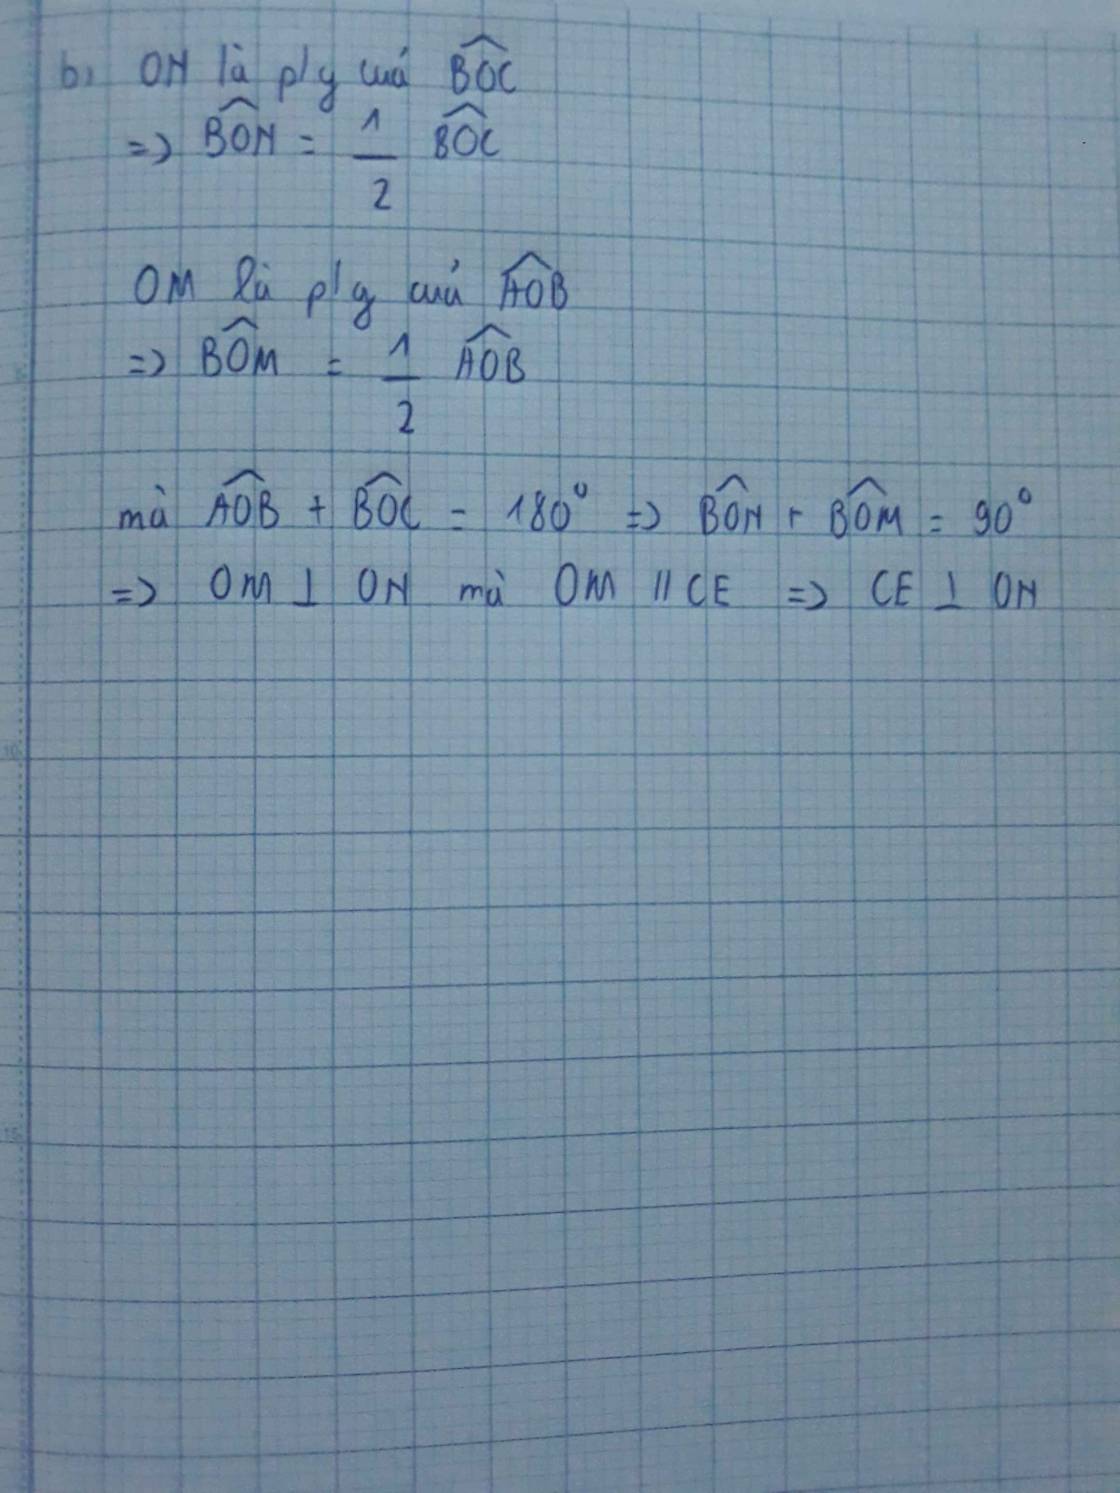 b, ON là p/g cuả $\widehat{BOC}$
=> $\widehat{BON}$ = $\frac{1}{2}$ $\widehat{BOC}$
OM là p/g cuả $\widehat{AOB}$
=> $\widehat{BOM}$ = $\frac{1}{2}$ $\widehat{AOB}$
mà $\widehat{AOB}$ + $\widehat{BOC}$ = 180° => $\widehat{BON}$ + $\widehat{BOM}$ = 90°
=> OM ⊥ ON mà OM // CE => CE ⊥ ON
10
15